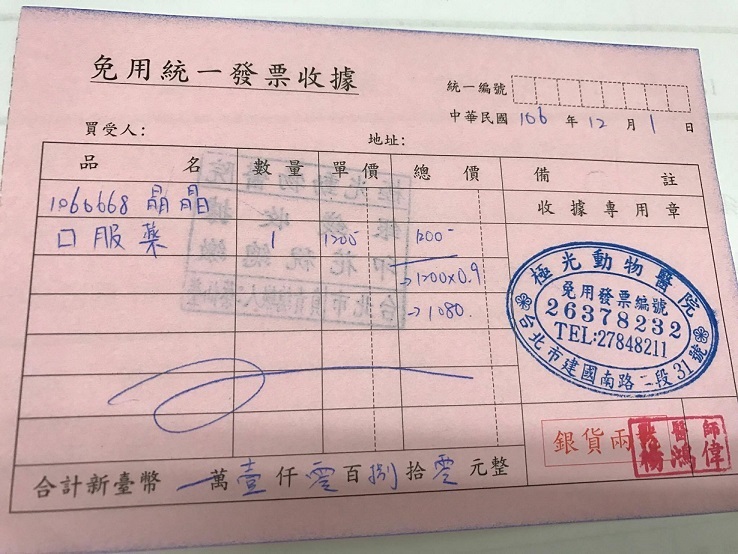 免用統一發票收據
統一編號
中華民國 106 年 12 月 1 日
買受人:
地址:
品名 數量 單價 總價 備註
收據專用章
1066668 晶晶
口服藥 1 1200 1200-
→1200×0.9
→1080.
極光動物醫院
銀錢收據
印花稅總繳
極光動物醫院
免用發票編號
26378232
TEL:27848211
台北市建國南路二段31號
銀貨兩
獸醫師
楊鴻偉
合計新臺幣 萬壹仟零百捌拾零元整